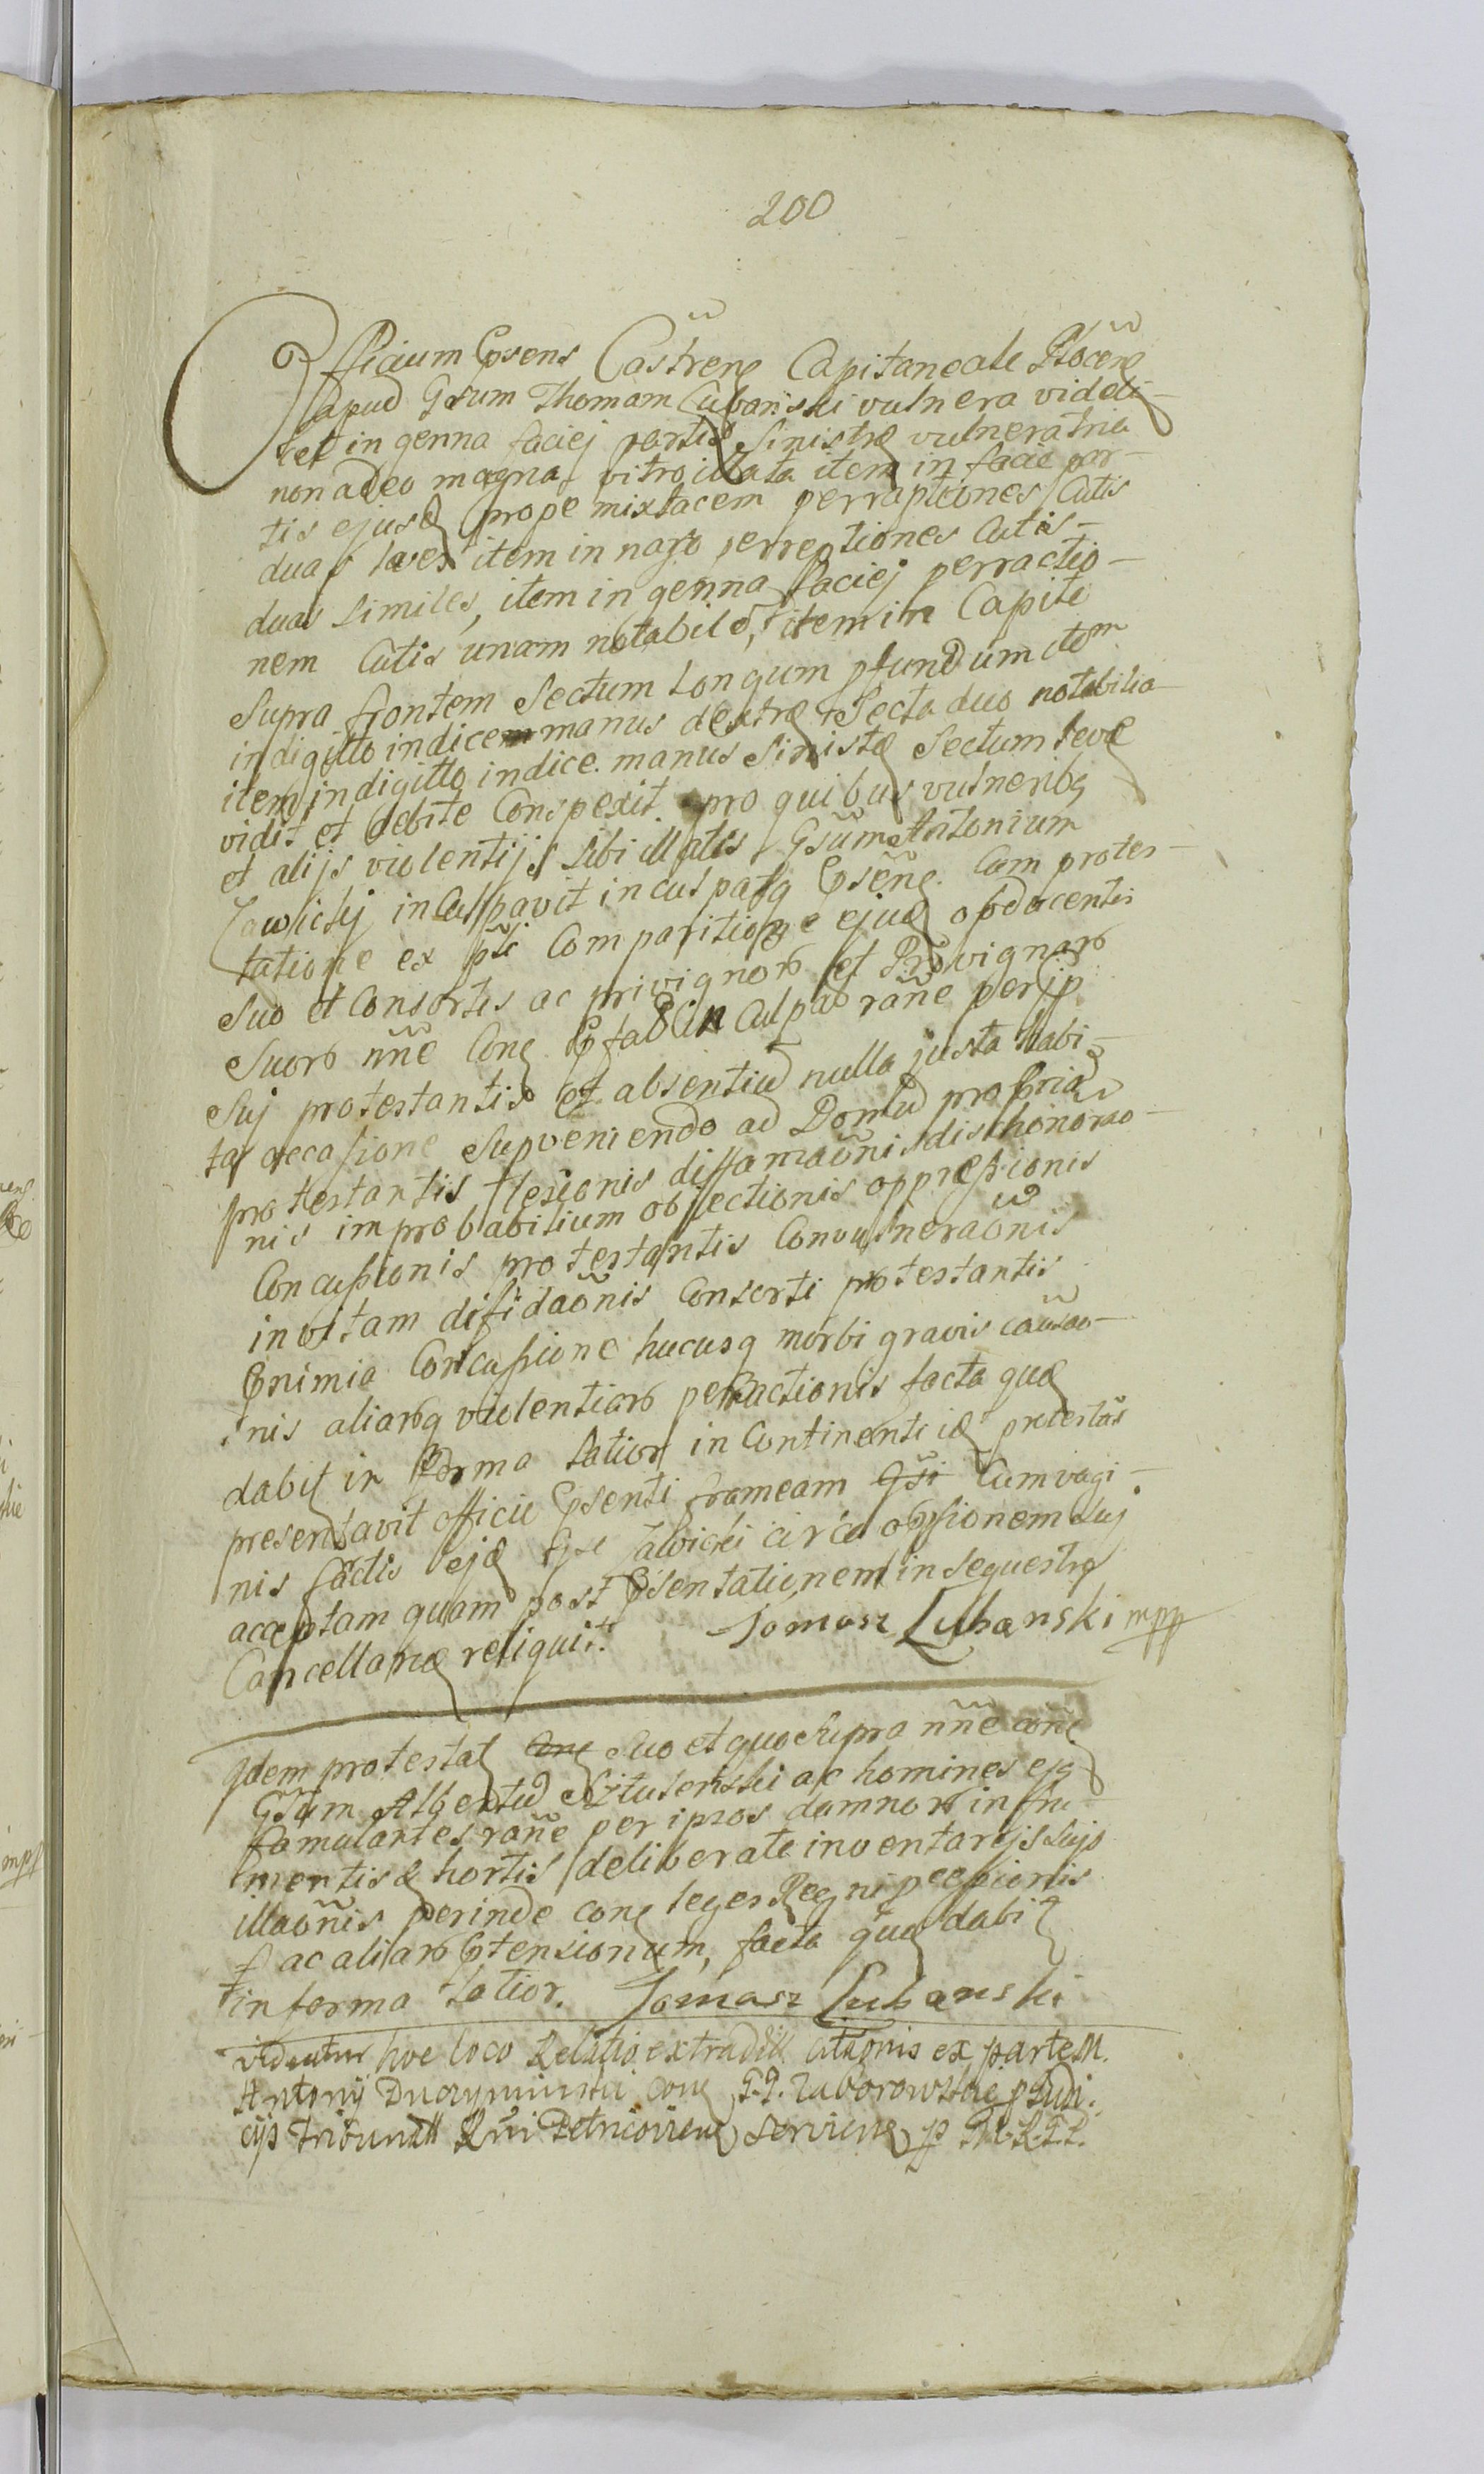 200
Officium Psens Castrens Capitaneale Plocens
apud Gsum Thomam Lubański vulnera videli-
cet in genna faciej partis sinistræ vulnera tria
non adeo magna vitro illata item in facie par-
tis ejusd prope mixtacem perraptiones Cutis
duas leves item in naso perreptiones Cutis
duas similes, item in genna faciej perractio-
nem Cutis unam notabile, item in Capite
supra frontem Sectum Longum pfundum item
in digitto indice manus dextræ Secta duo notabilia
item in digitto indice manus sinistræ Sectum leve
vidit et debite Conspexit pro quibus vulneribq
et alijs violentijs sibi illatis Gsum Antonium
Zawickj inculpavit inculpatq Psens. Cum protes-
tatione ex pti Comparitione ejusd opducentis
suo et Consortis ac privignor et Privignar
suor nne Cone Ptad in Culpao rane per ip
suj protestantis et absentiu nulla justa habi-
ta occasione supveniendo ad Domu propria
protestantis læsionis diffamaonis dishonorao-
nis improbabilium objectionis oppressionis
Concussionis protestantis Convulneraonis
in vitam difidaonis Conserti protestantis
Pnimia Concussione hucusq morbi gravis causao-
nis aliarq violentiar perractionis facta quæ
dabit in forma latiori in Continenti id protestans
presentavit officii Psenti frameam Gsi Cum vagi-
nis factis ejd Gsi Zawicki circa opsionem suj
acceptam quam post Psentationem in sequestro
Cancellariæ reliquit. Tomasz Lubanski mpp
Idem protestat Cone suo et quo supra nne cone
Gsum Albertu ac homines ejq
famulantes rane per ipsos damnor in fru-
mentis & hortis deliberate inventarijs sujs
illaonis perinde cone leges Regni
ac aliar Ptensionum, facta quæ dabit
in forma latior. Tomasz Lubanski
videatur hoc loco Relatio extradit citaonis ex parte M.
Antonij cone G.G. Zaborowskie p Judi-
cijs Tribunall Rni Petricovien serviens p